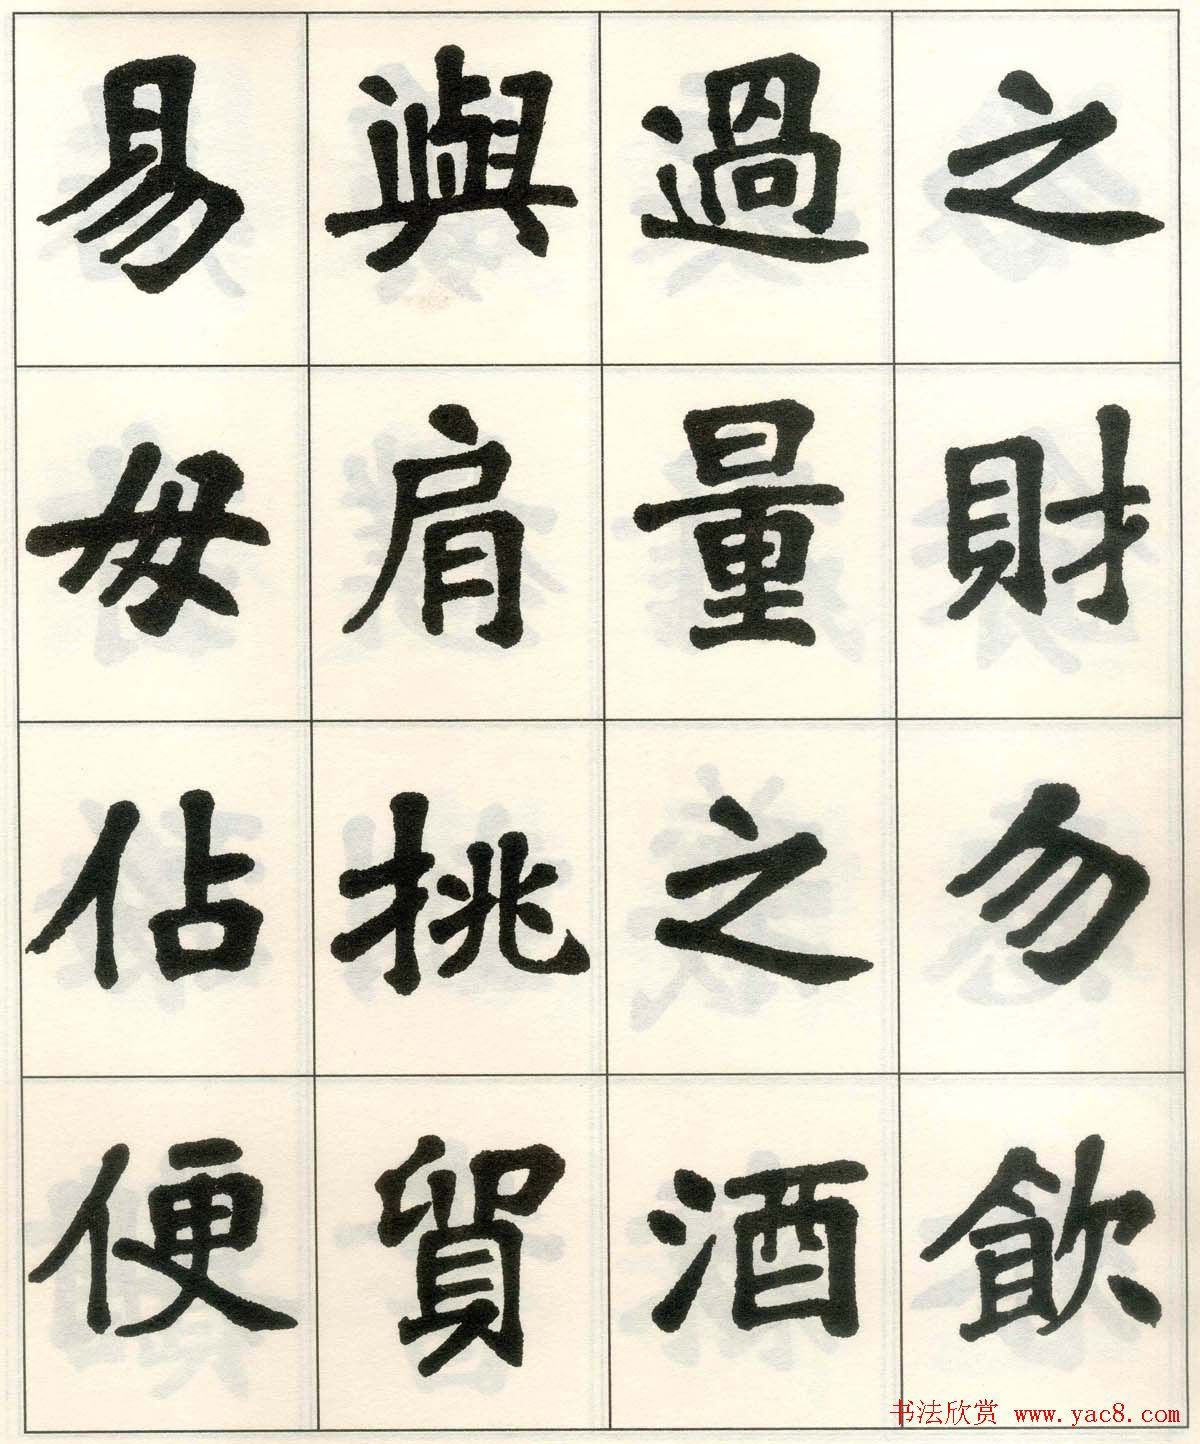 之財勿飲
過量之酒
與肩挑貿
易毋佔便
书法欣赏 www.yac8.com